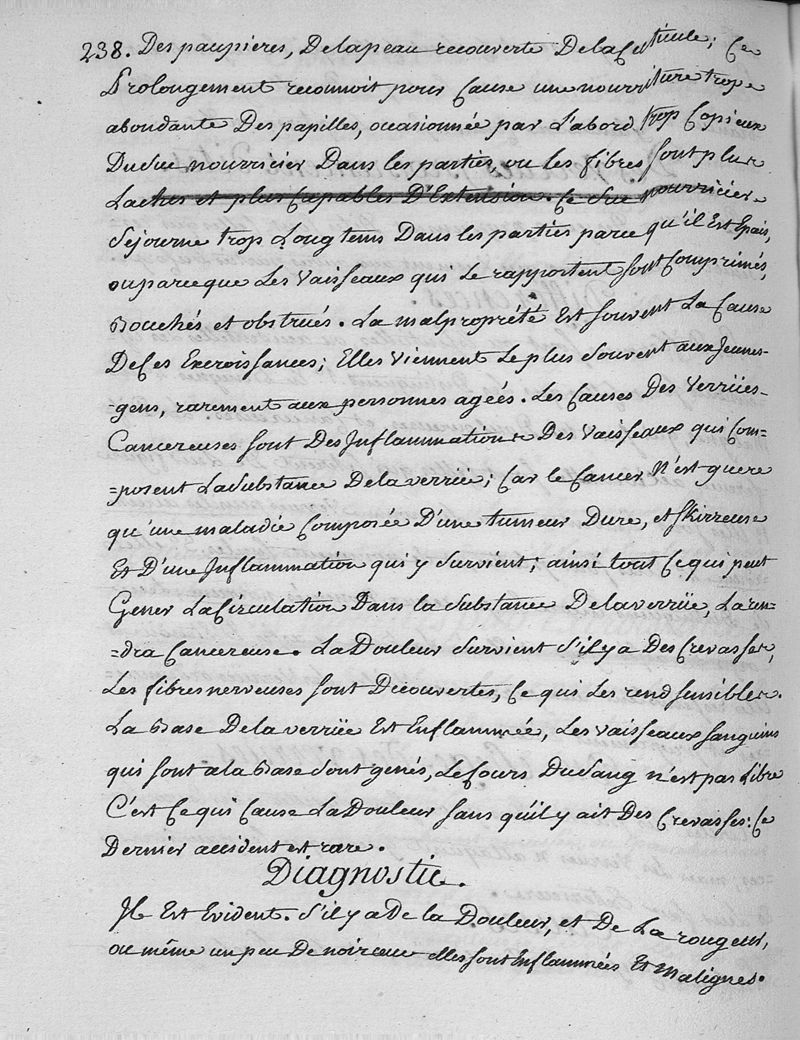 238. Des paupieres, De la peau recouverte De la Cuticule; Ce
Prolongement reconnoit pour Cause une nourriture trop
abondante Des papilles, occasionnée par L'abord trop Copieux
Du Suc nourricier Dans les parties, ou les fibres sont plus
Laches et plus Capables D'Extension. Ce Suc nourricier
Sejourne trop Longtems Dans les parties parce qu'il Est Epais,
ou parceque Les Vaisseaux qui Le rapportent sont Comprimés,
Bouchés et obstrués. La malpropreté Est souvent La Cause
De Ces Excroissances; Elles Viennent Le plus Souvent aux Jeunes-
-gens, rarement aux personnes ageés. Les Causes Des Verrües-
Cancereuses sont Des Inflammations Des Vaisseaux qui Com=
=posent La Substance De la verrüe; Car le Cancer N'est guere
qu'une maladie Composée D'une tumeur Dure, et Skirreuse
Et D'une Inflammation qui y Survient; ainsi tout Ce qui peut
Gener La Circulation Dans la Substance De la verrüe, La ren=
=dra Cancereuse. La Douleur Survient S'il y a Des Crevasses,
Les fibres nerveuses sont Decouvertes, Ce qui Les rend sensibles.
La Base De la verrüe Est Enflammée, Les vaisseaux sanguins
qui sont a la Base sont genés, Le Cours Du Sang n'est pas Libre
C'est Ce qui Cause La Douleur sans qu'il y ait Des Crevasses: Ce
Dernier accident est rare.
Diagnostic.
Il Est Evident. S'il y a De la Douleur, et De La rougeur,
ou même un peu De noirceur elles sont Enflammées Et Malignes.